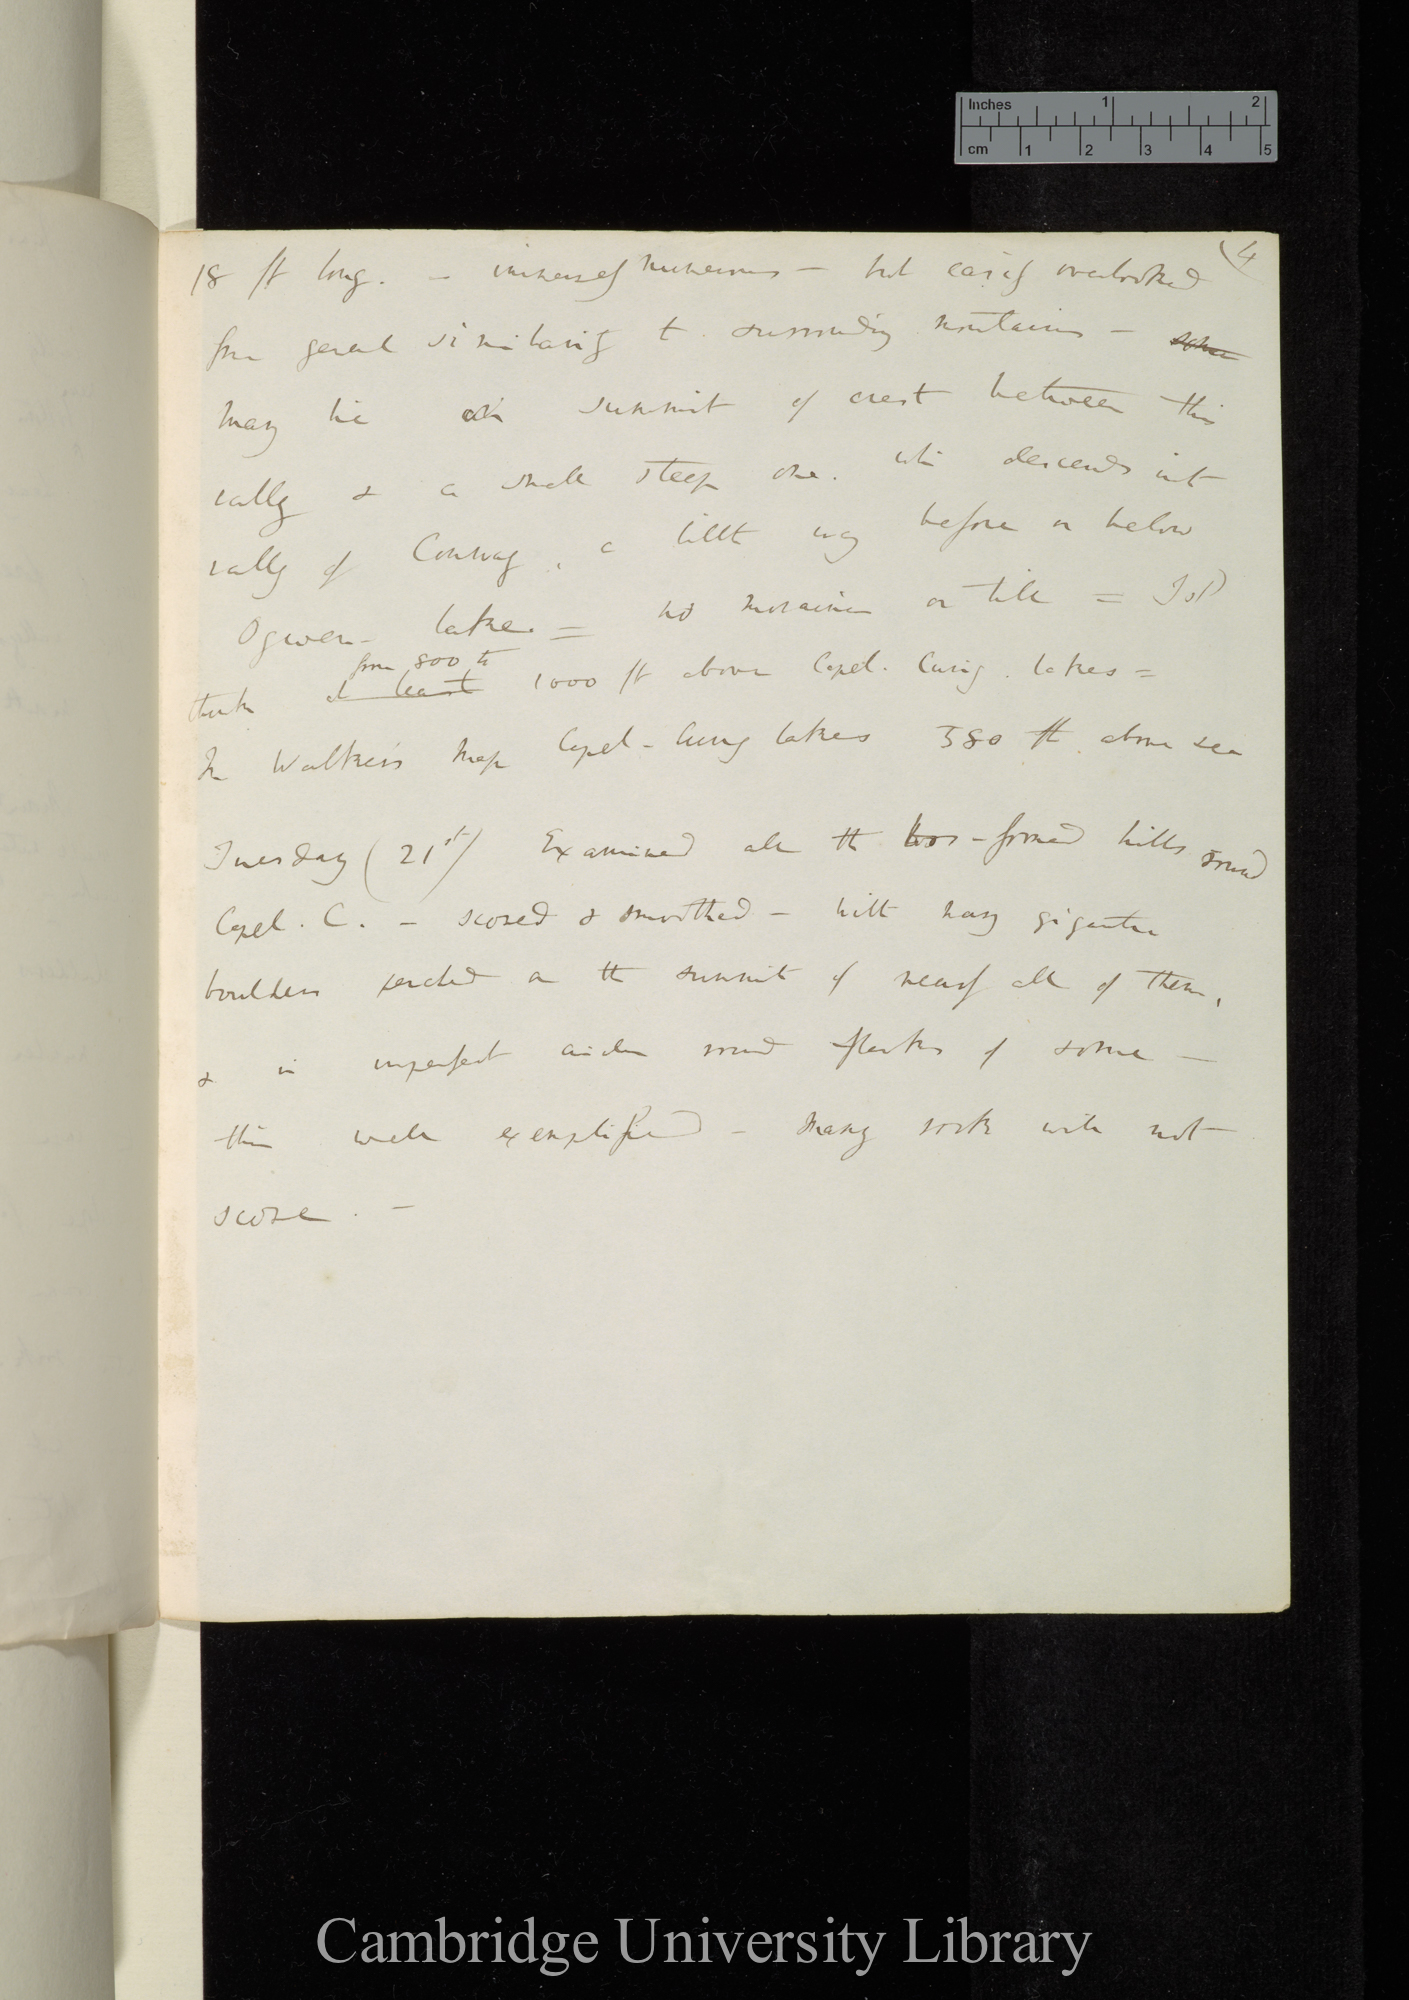 Inches 1 2
cm 1 2 3 4 5
(4
18 ft long. — immensely numerous — but easily overlooked
from general similarity to surrounding mountains — some
many lie on summit of crest between this
vally & a small steep one. which descends into
vally of Conway, a little way before or below
Ogwen- lake. = no moraine or till =
from 800 to
think at least 1000 ft above Capel. Curig. lakes =
In Walker's map Capel-Curig lakes 580 ft above sea
Tuesday (21st) Examined all the boss-formed hills round
Capel. C. — scored & smoothed — with many gigantic
boulders perched on the summit of nearly all of them,
& in imperfect circles round flanks of some —
this well exemplified — many rocks will not
score. —
Cambridge University Library